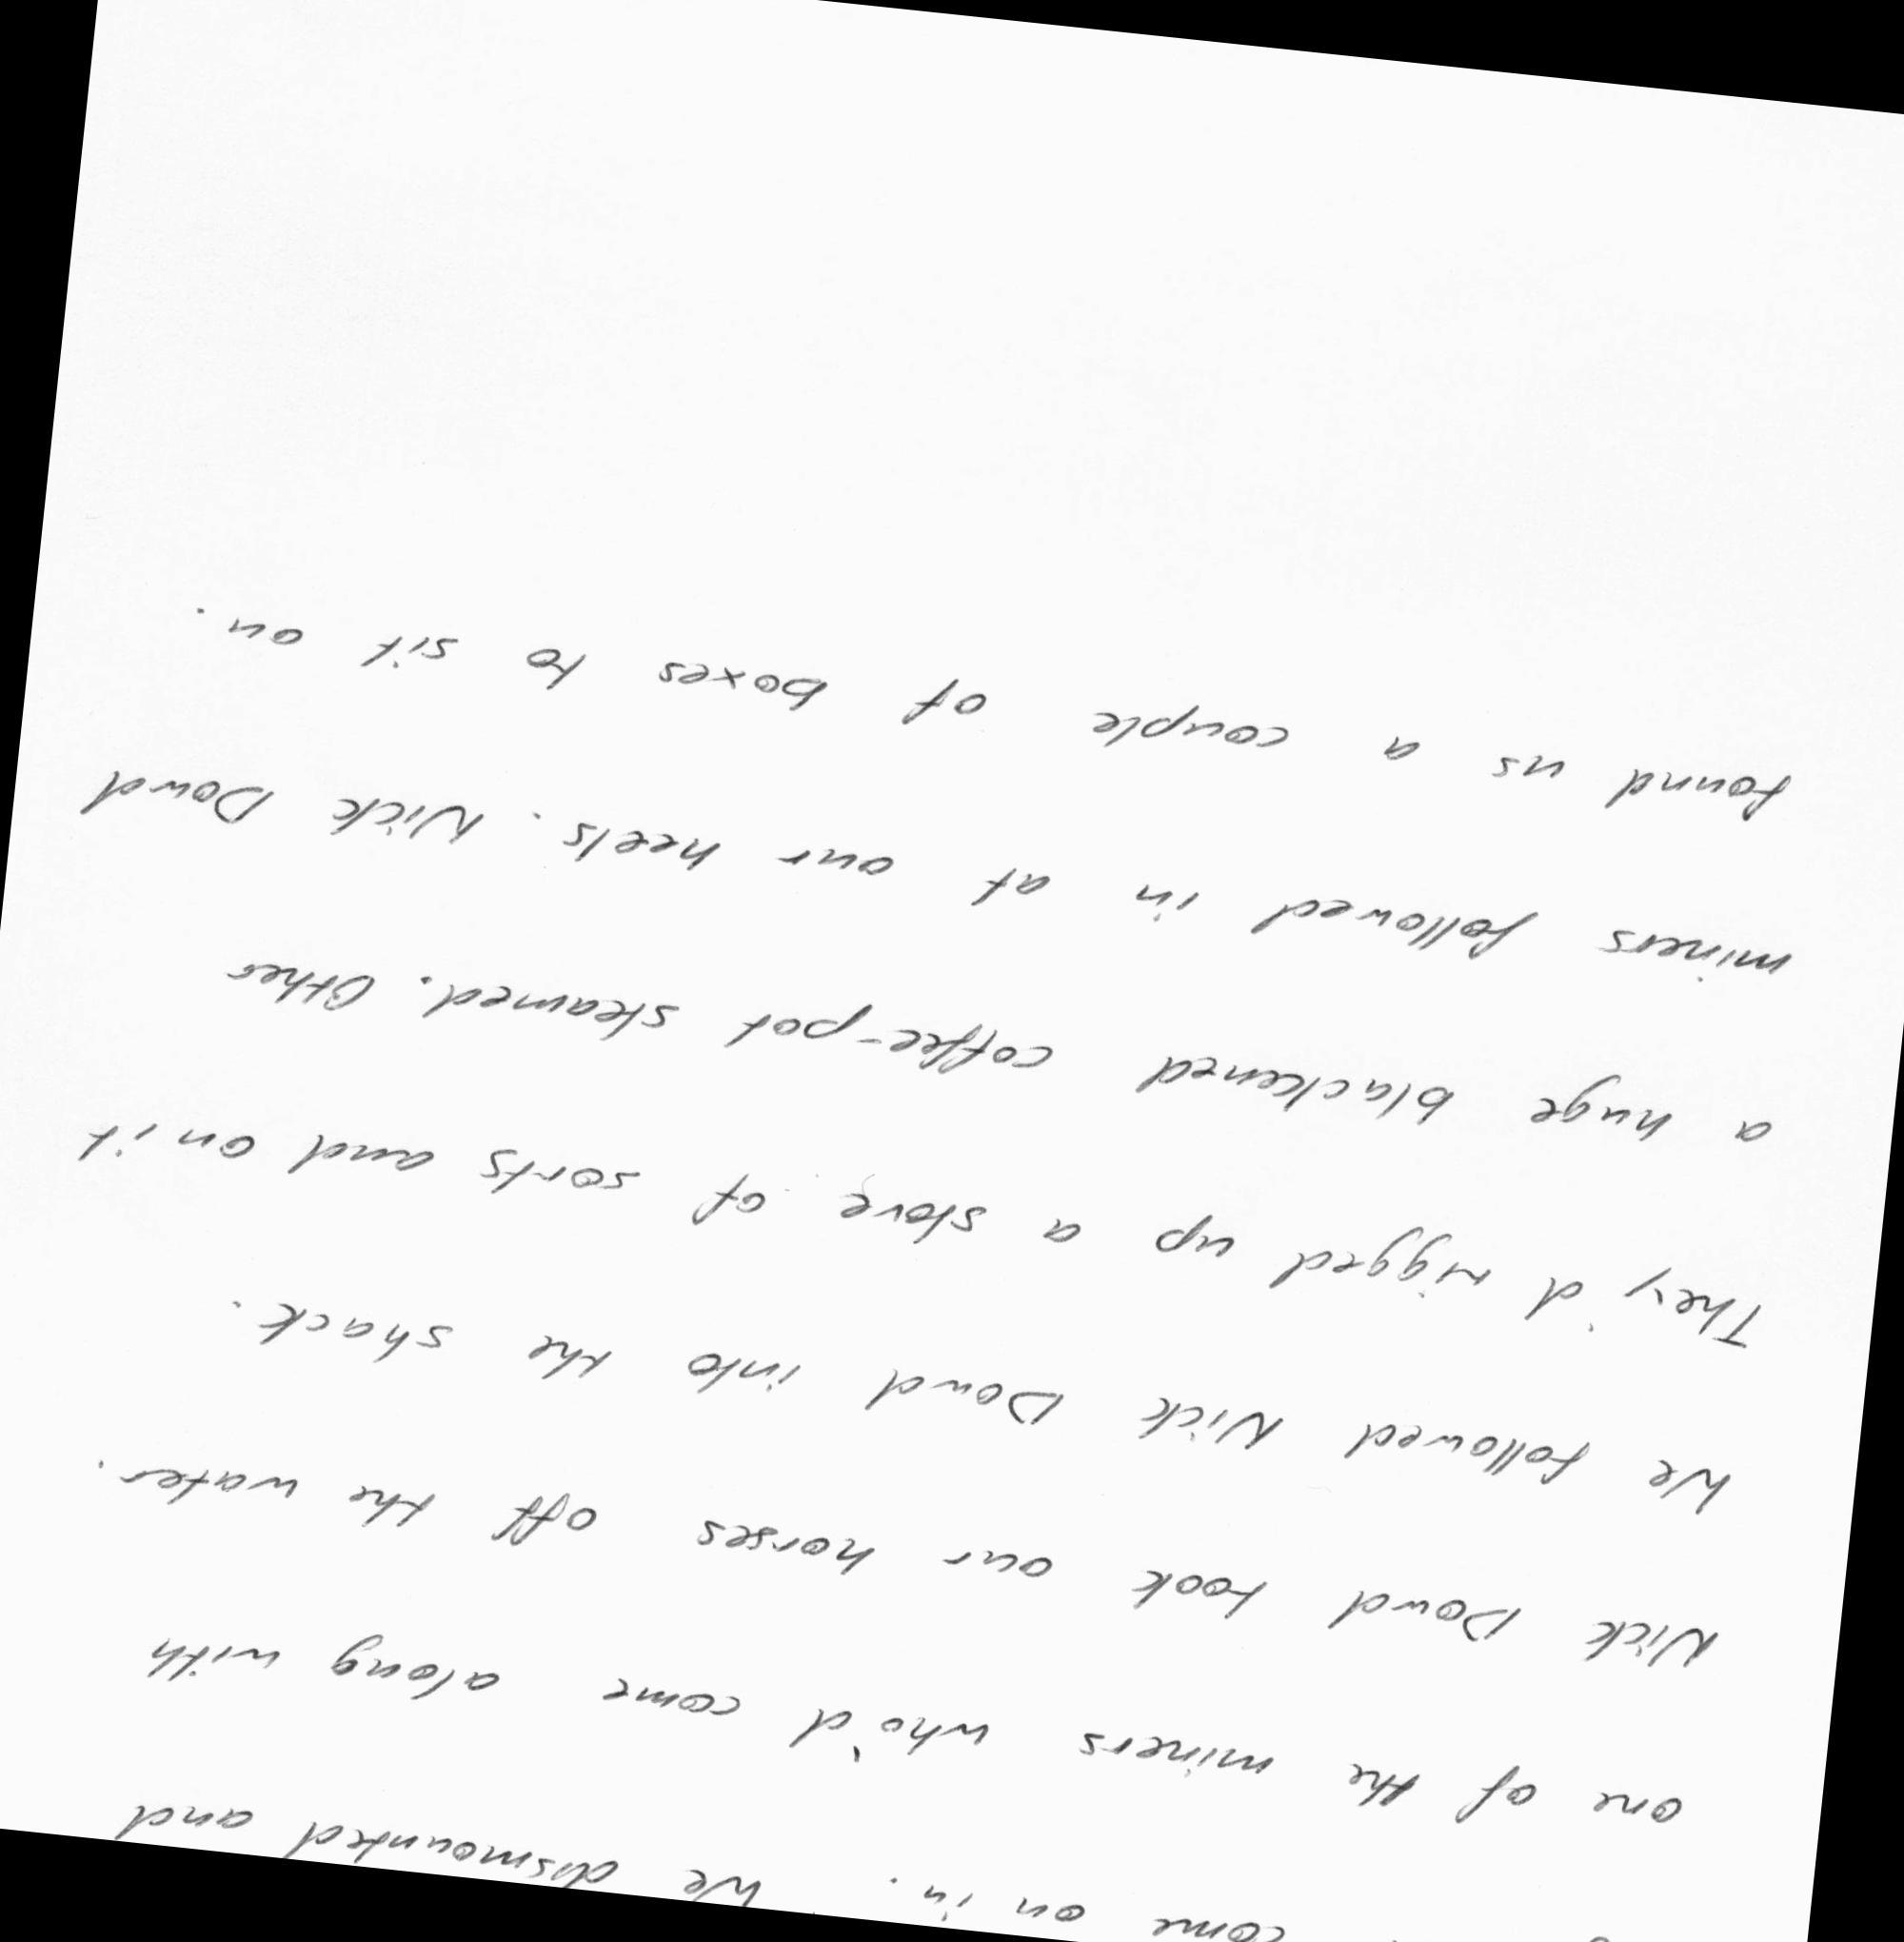 come on in. We dismounted and
one of the miners who'd come along with
Nick Dowd took our horses off the water.
We followed Nick Dowd into the shack.
They'd rigged up a stove of sorts and on it
a huge blackened coffee-pot steamed. Other
miners followed in at our heels. Nick Dowd
found us a couple of boxes to sit on.